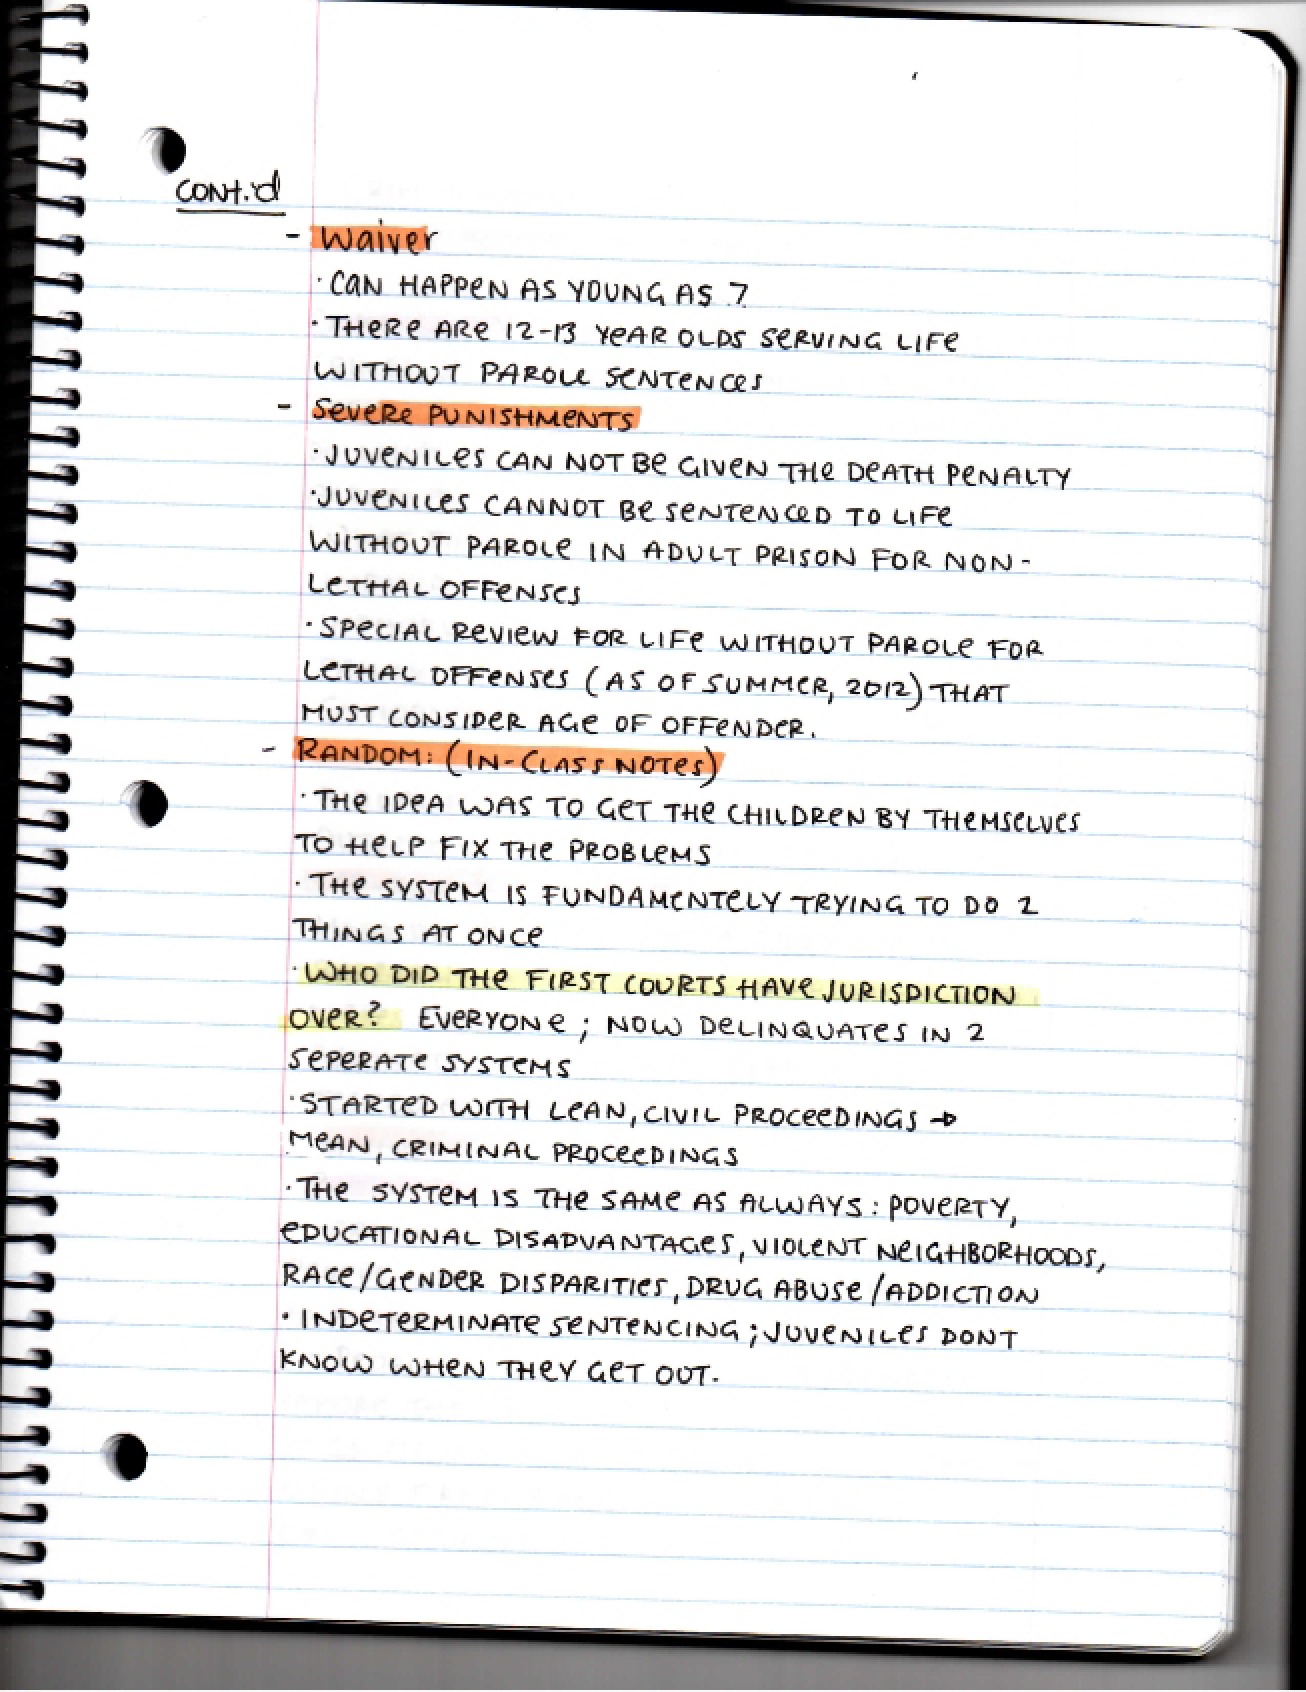 CONT.'d
- Waiver
· CAN HAPPEN AS YOUNG AS 7
· THERE ARE 12-13 YEAR OLDS SERVING LIFE
WITHOUT PAROLE SENTENCES
- SEVERE PUNISHMENTS
· JUVENILES CAN NOT BE GIVEN THE DEATH PENALTY
· JUVENILES CANNOT BE SENTENCED TO LIFE
WITHOUT PAROLE IN ADULT PRISON FOR NON-
LETHAL OFFENSES
· SPECIAL REVIEW FOR LIFE WITHOUT PAROLE FOR
LETHAL OFFENSES (AS OF SUMMER, 2012) THAT
MUST CONSIDER AGE OF OFFENDER.
- RANDOM: (IN-CLASS NOTES)
· THE IDEA WAS TO GET THE CHILDREN BY THEMSELVES
TO HELP FIX THE PROBLEMS
· THE SYSTEM IS FUNDAMENTELY TRYING TO DO 2
THINGS AT ONCE
· WHO DID THE FIRST COURTS HAVE JURISDICTION
OVER? EVERYONE; NOW DELINQUATES IN 2
SEPERATE SYSTEMS
· STARTED WITH LEAN, CIVIL PROCEEDINGS →
MEAN, CRIMINAL PROCEEDINGS
· THE SYSTEM IS THE SAME AS ALWAYS: POVERTY,
EDUCATIONAL DISADVANTAGES, VIOLENT NEIGHBORHOODS,
RACE/GENDER DISPARITIES, DRUG ABUSE/ADDICTION
· INDETERMINATE SENTENCING; JUVENILES DONT
KNOW WHEN THEY GET OUT.